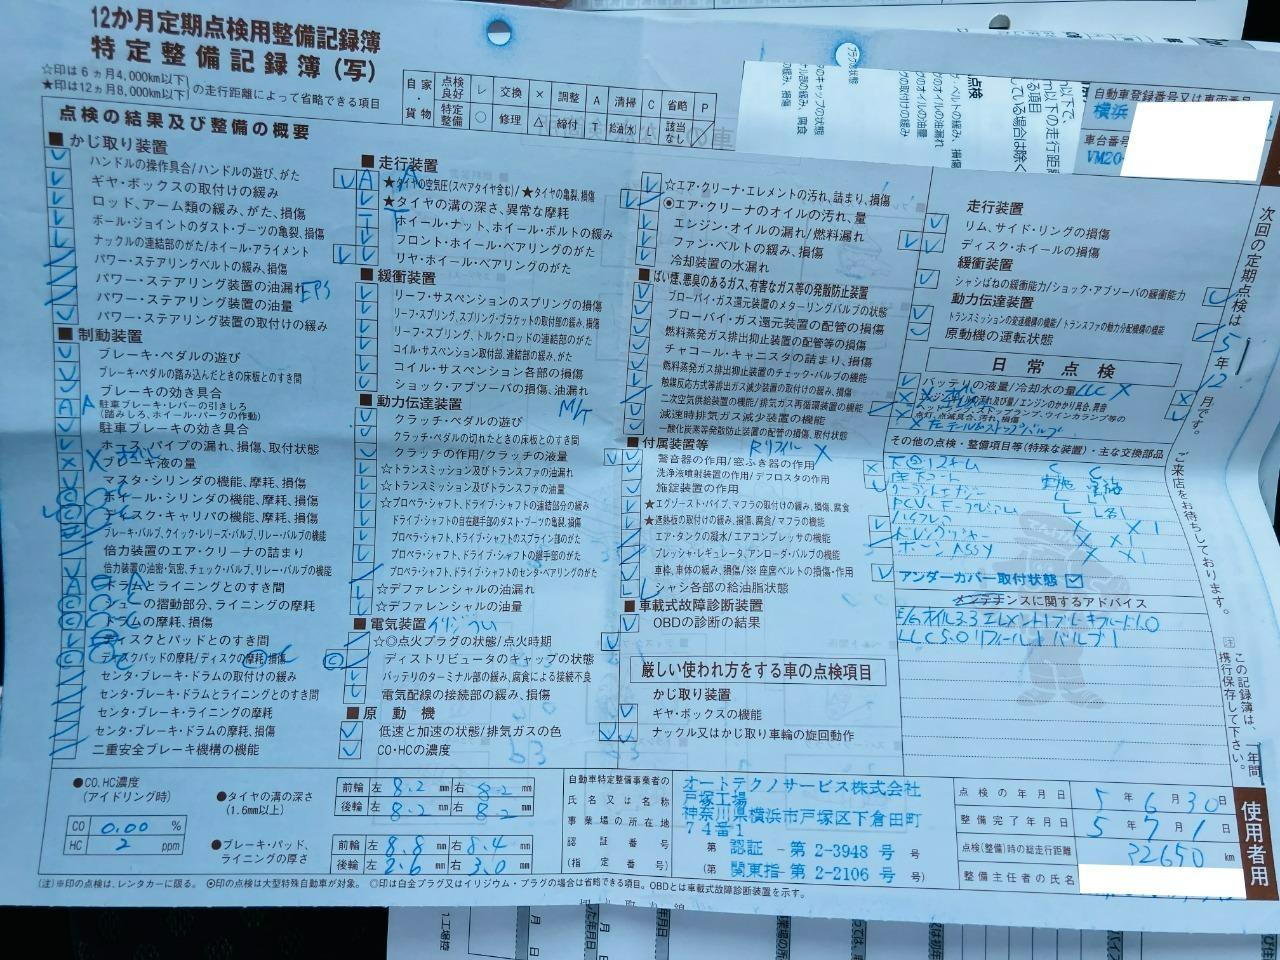 12か月定期点検用整備記録簿
特定整備記録簿(写)
☆印は6ヵ月4,000km以下
★印は12ヵ月8,000km以下
の走行距離によって省略できる項目
自家・貨物
点検良好 レ 交換 × 調整 A 清掃 C 省略 P
特定整備 ○ 修理 △ 締付 T 給油(水) L 該当なし ／
自動車登録番号又は車両番号
横浜
車台番号
VM20-
点検の結果及び整備の概要
■ かじ取り装置
ハンドルの操作具合/ハンドルの遊び、がた
ギヤ・ボックスの取付けの緩み
ロッド、アーム類の緩み、がた、損傷
ボール・ジョイントのダスト・ブーツの亀裂、損傷
ナックルの連結部のがた/ホイール・アライメント
パワー・ステアリングベルトの緩み、損傷
パワー・ステアリング装置の油漏れ
EPS
パワー・ステアリング装置の油量
パワー・ステアリング装置の取付けの緩み
■ 制動装置
ブレーキ・ペダルの遊び
ブレーキ・ペダルの踏み込んだときの床板とのすき間
ブレーキの効き具合
駐車ブレーキ・レバーの引きしろ
(踏みしろ、ホイール・パークの作動)
駐車ブレーキの効き具合
ホース、パイプの漏れ、損傷、取付状態
ブレーキ液の量
マスタ・シリンダの機能、摩耗、損傷
ホイール・シリンダの機能、摩耗、損傷
ディスク・キャリパの機能、摩耗、損傷
ブレーキ・バルブ、クイック・レリーズ・バルブ、リレー・バルブの機能
倍力装置のエア・クリーナの詰まり
倍力装置の油密・気密、チェック・バルブ、リレー・バルブの機能
ドラムとライニングとのすき間
シューの摺動部分、ライニングの摩耗
ドラムの摩耗、損傷
ディスクとパッドとのすき間
ディスクパッドの摩耗/ディスクの摩耗、損傷
センタ・ブレーキ・ドラムの取付けの緩み
センタ・ブレーキ・ドラムとライニングとのすき間
センタ・ブレーキ・ライニングの摩耗
センタ・ブレーキ・ドラムの摩耗、損傷
二重安全ブレーキ機構の機能
■ 走行装置
★タイヤの空気圧(スペアタイヤ含む)/★タイヤの亀裂、損傷
★タイヤの溝の深さ、異常な摩耗
ホイール・ナット、ホイール・ボルトの緩み
フロント・ホイール・ベアリングのがた
リヤ・ホイール・ベアリングのがた
■ 緩衝装置
リーフ・サスペンションのスプリングの損傷
リーフ・スプリング、スプリング・ブラケットの取付部の緩み、損傷
リーフ・スプリング、トルク・ロッドの連結部のがた
コイル・サスペンション取付部、連結部の緩み、がた
コイル・サスペンション各部の損傷
ショック・アブソーバの損傷、油漏れ
■ 動力伝達装置
M/T
クラッチ・ペダルの遊び
クラッチ・ペダルの切れたときの床板とのすき間
クラッチの作用/クラッチの液量
☆トランスミッション及びトランスファの油漏れ
☆トランスミッション及びトランスファの油量
☆プロペラ・シャフト、ドライブ・シャフトの連結部分の緩み
ドライブ・シャフトの自在継手部のダスト・ブーツの亀裂、損傷
プロペラ・シャフト、ドライブ・シャフトのスプライン部のがた
プロペラ・シャフト、ドライブ・シャフトの継手部のがた
プロペラ・シャフト、ドライブ・シャフトのセンタ・ベアリングのがた
☆デファレンシャルの油漏れ
☆デファレンシャルの油量
■ 電気装置
☆◎点火プラグの状態/点火時期
ディストリビュータのキャップの状態
バッテリのターミナル部の緩み、腐食による接続不良
電気配線の接続部の緩み、損傷
■ 原動機
低速と加速の状態/排気ガスの色
CO・HCの濃度
☆エア・クリーナ・エレメントの汚れ、詰まり、損傷
⦿エア・クリーナのオイルの汚れ、量
エンジン・オイルの漏れ/燃料漏れ
ファン・ベルトの緩み、損傷
冷却装置の水漏れ
■ ばい煙、悪臭のあるガス、有害なガス等の発散防止装置
ブローバイ・ガス還元装置のメターリングバルブの状態
ブローバイ・ガス還元装置の配管の損傷
燃料蒸発ガス排出抑止装置の配管等の損傷
チャコール・キャニスタの詰まり、損傷
燃料蒸発ガス排出抑止装置のチェック・バルブの機能
触媒反応方式等排出ガス減少装置の取付けの緩み、損傷
二次空気供給装置の機能/排気ガス再循環装置の機能
減速時排気ガス減少装置の機能
一酸化炭素等発散防止装置の配管の損傷、取付状態
■ 付属装置等
警音器の作用/窓ふき器の作用
洗浄液噴射装置の作用/デフロスタの作用
施錠装置の作用
★エグゾースト・パイプ、マフラの取付けの緩み、損傷、腐食
★遮熱板の取付けの緩み、損傷、腐食/マフラの機能
エア・タンクの凝水/エアコンプレッサの機能
プレッシャ・レギュレータ、アンローダ・バルブの機能
車枠、車体の緩み、損傷/※座席ベルトの損傷・作用
シャシ各部の給油脂状態
■ 車載式故障診断装置
OBDの診断の結果
厳しい使われ方をする車の点検項目
かじ取り装置
ギヤ・ボックスの機能
ナックル又はかじ取り車輪の旋回動作
走行装置
リム、サイド・リングの損傷
ディスク・ホイールの損傷
緩衝装置
シャシばねの緩衝能力/ショック・アブソーバの緩衝能力
動力伝達装置
トランスミッションの変速機構の機能/トランスファの動力分配機構の機能
原動機の運転状態
日常点検
バッテリの液量/冷却水の量 LLC X
その他の点検・整備項目等(特殊な装置)・主な交換部品
アンダーカバー取付状態 ☑
メンテナンスに関するアドバイス
次回の定期点検は 5年12月です。
ご来店をお待ちしております。
この記録簿は、一年間携行保存して下さい。
使用者用
●CO、HC濃度
(アイドリング時)
CO 0.00 %
HC 2 ppm
●タイヤの溝の深さ
(1.6mm以上)
前輪 左 8.2 mm 右 8.2 mm
後輪 左 8.2 mm 右 8.2
●ブレーキ・パッド、ライニングの厚さ
前輪 左 8.8 mm 右 8.4 mm
後輪 左 2.6 mm 右 3.0 mm
自動車特定整備事業者の
氏名又は名称
事業場の所在地
認証番号
(指定番号)
オートテクノサービス株式会社
戸塚工場
神奈川県横浜市戸塚区下倉田町
74番1
第 認証 -第 2-3948 号 号
(第 関東指-第 2-2106 号 号)
点検の年月日 5年6月30日
整備完了年月日 5年7月1日
点検(整備)時の総走行距離 32650 km
整備主任者の氏名
(注)※印の点検は、レンタカーに限る。⦿印の点検は大型特殊自動車が対象。◎印は白金プラグ又はイリジウム・プラグの場合は省略できる項目。OBDとは車載式故障診断装置を示す。